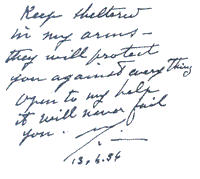 Keep sheltered
in my arms —
they will protect
you against everything
open to my help
it will never fail
you.
13.6.56